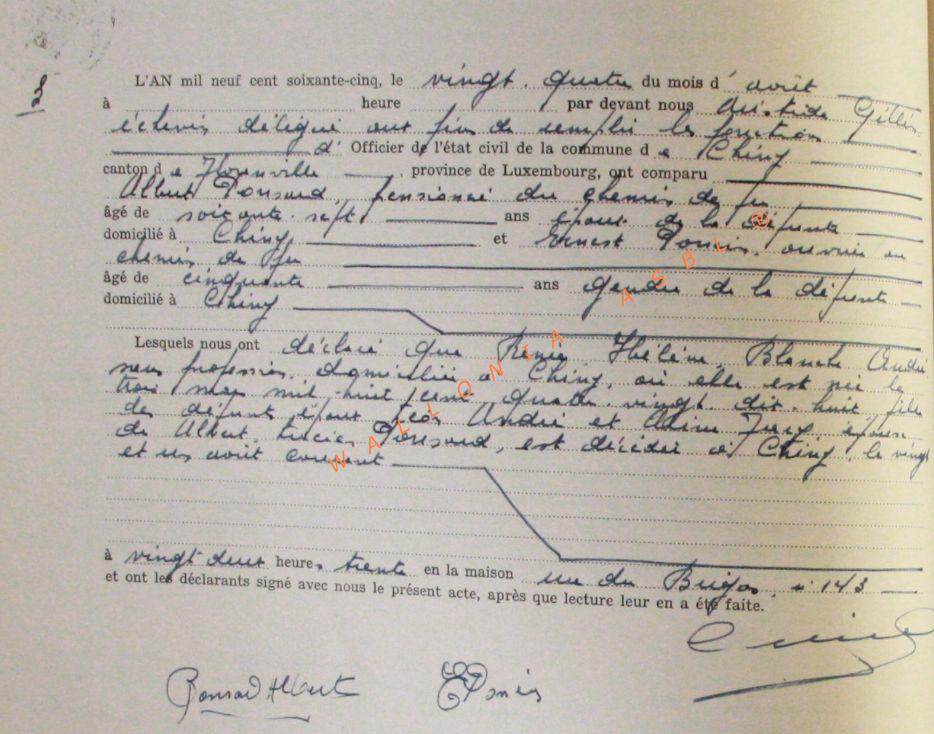 3
L'AN mil neuf cent soixante-cinq, le vingt quatre du mois d' août
à heure par devant nous Aristide Gillis
échevin délégué aux fins de remplir les fonctions
d' Officier de l'état civil de la commune d e Chiny
canton d e Florenville , province de Luxembourg, ont comparu
Albert Ponsard, pensionné du chemin de fer
âgé de soixante sept ans époux de la défunte
domicilié à Chiny et Ernest ouvrier au
chemin de fer
âgé de cinquante ans gendre de la défunte
domicilié à Chiny
Lesquels nous ont déclaré que Hélène Blanche André
sans profession, domiciliée à Chiny, où elle est née le
trois mai mil huit cent quatre vingt dix huit, fille
des défunts époux Léon André et épouse
de Albert Lucien Ponsard, est décédée à Chiny, le vingt
et un août courant
à vingt deux heures trente en la maison rue du n 143
et ont les déclarants signé avec nous le présent acte, après que lecture leur en a été faite.
Ponsard Albert
WALLONIA ASBL ©